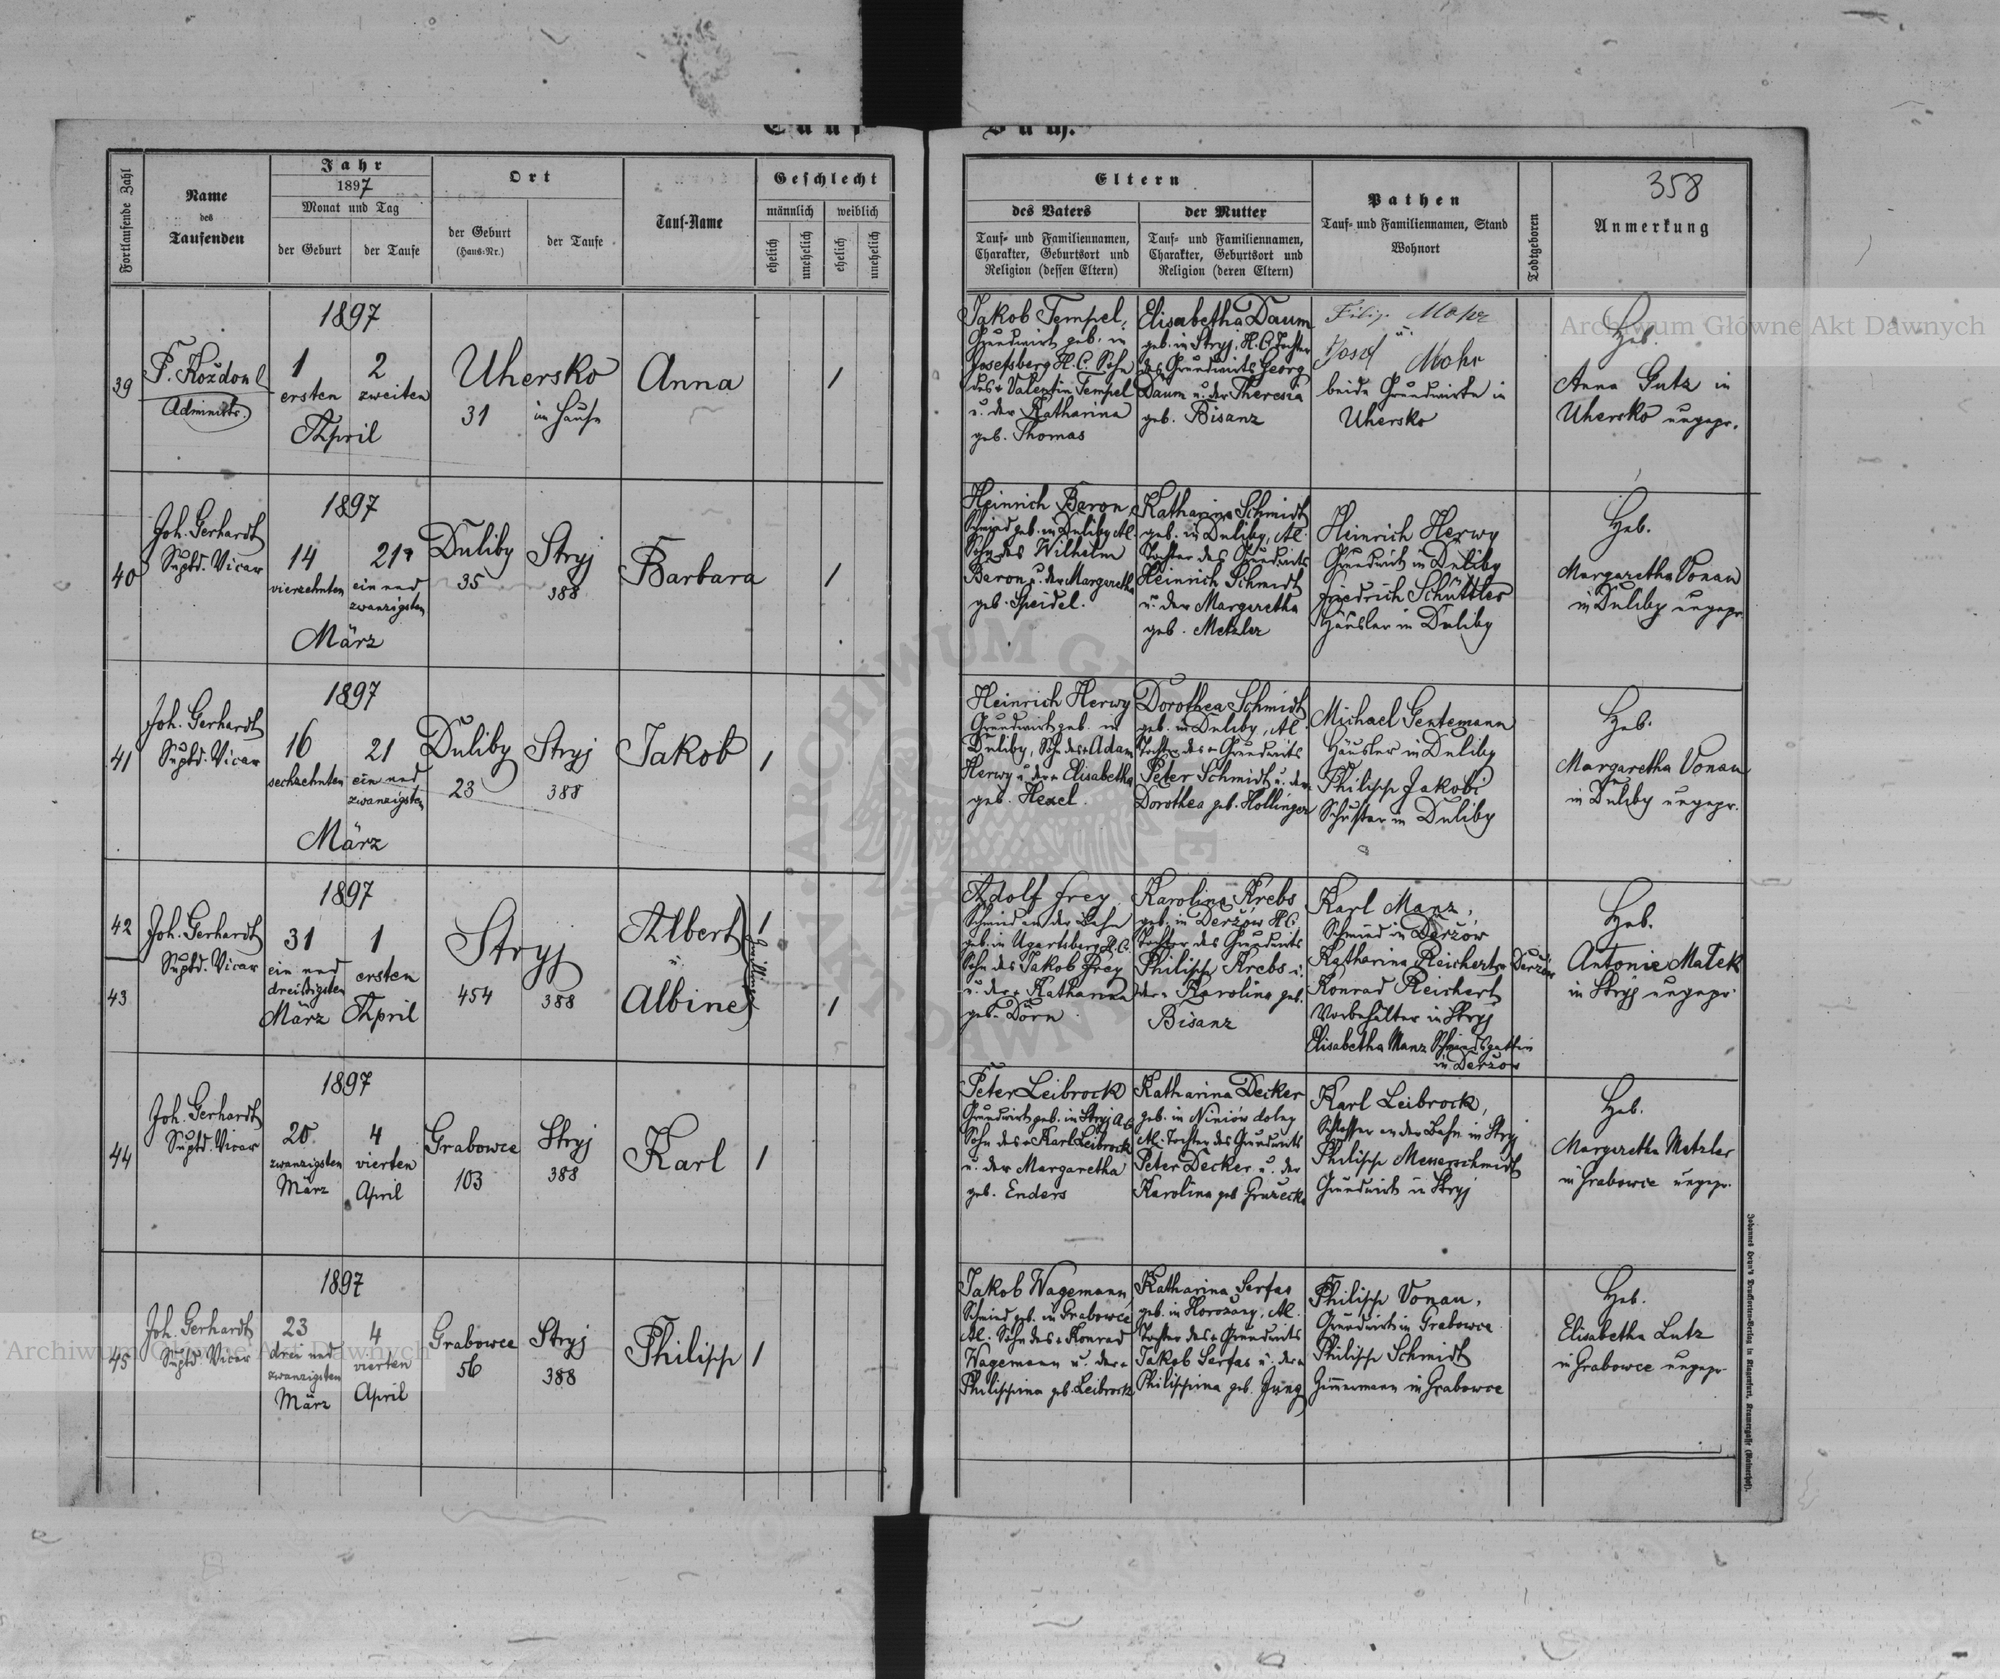 Tauf-
Buch.
Fortlaufende Zahl
Name
des
Taufenden
Jahr
1897
Monat und Tag
der Geburt
der Taufe
Ort
der Geburt
(Haus-Nr.)
der Taufe
Tauf-Name
Geschlecht
männlich
weiblich
ehelich
unehelich
ehelich
unehelich
Eltern
des Vaters
Tauf- und Familiennamen,
Charakter, Geburtsort und
Religion (dessen Eltern)
der Mutter
Tauf- und Familiennamen,
Charakter, Geburtsort und
Religion (deren Eltern)
Pathen
Tauf- und Familiennamen, Stand
Wohnort
Todtgeboren
358
Anmerkung
39
F. Kożdon
Administr.
1897
1
ersten
2
zweiten
April
Uhersko
31
im Hause
Anna
1
Jakob Tempel,
Grundwirt geb. in
Josefsberg H.C. Sohn
des + Valentin Tempel
u. der Katharina
geb. Thomas
Elisabetha Daum
geb. in Stryj, H.C. Tochter
des Grundwirts Georg
Daum u. der Theresia
geb. Bisanz
Filip Mohr
u.
Josef Mohr
beide Grundwirte in
Uhersko
Heb.
Anna Gutz in
Uhersko ungepr.
40
Joh. Gerhardt
Suptd. Vicar
1897
14
vierzehnten
21
ein und
zwanzigsten
März
Duliby
35
Stryj
388
Barbara
1
Heinrich Beron,
Schmied geb. in Duliby Al.
Sohn des Wilhelm
Beron u. der Margaretha
geb. Speidel.
Katharina Schmidt
geb. in Duliby, Al.
Tochter des Grundwirts
Heinrich Schmidt
u. der Margaretha
geb. Metzler
Heinrich Herwy
Grundwirt in Duliby
Friedrich Schüttler
Häusler in Duliby
Heb.
Margaretha Vonau
in Duliby ungepr.
41
Joh. Gerhardt
Suptd. Vicar
1897
16
sechzehnten
21
ein und
zwanzigsten
März
Duliby
23
Stryj
388
Jakob
1
Heinrich Herwy
Grundwirt geb. in
Duliby, Sohn des + Adam
Herwy u. der + Elisabetha
geb. Hexel
Dorothea Schmidt
geb. in Duliby, Al.
Tochter des + Grundwirts
Peter Schmidt u. der
Dorothea geb. Hollinger
Michael Gentemann
Häusler in Duliby
Philipp Jakobi
Schuster in Duliby
Heb.
Margaretha Vonau
in Duliby ungepr.
42
43
Joh. Gerhardt
Suptd. Vicar
1897
31
ein und
dreißigsten
März
1
ersten
April
Stryj
454
388
Albert
u.
Albine
Zwillinge
1
1
Adolf Frey
Schmied an der Bahn
geb. in Ugartsberg H.C.
Sohn des Jakob Frey
u. der + Katharina
geb. Dorn
Karolina Krebs
geb. in Derżów H.C.
Tochter des Grundwirts
Philipp Krebs u.
der + Karolina geb.
Bisanz
Karl Manz,
Schmied in Derżów
Katharina Reichert in Derżów
Konrad Reichert
Vorbehälter in Stryj
Elisabetha Manz Schmiedsgattin
in Derżów
Heb.
Antonie Matek
in Stryj ungepr.
44
Joh. Gerhardt
Suptd. Vicar
1897
20
zwanzigsten
März
4
vierten
April
Grabowce
103
Stryj
388
Karl
1
Peter Leibrock
Grundwirt geb. in Stryj A.C.
Sohn des + Karl Leibrock
u. der Margaretha
geb. Enders
Katharina Decker
geb. in Niniów dolny
Al. Tochter des Grundwirts
Peter Decker u. der
Karolina geb.
Karl Leibrock,
Schlosser an der Bahn in Stryj
Philipp Messerschmidt
Grundwirt in Stryj
Heb.
Margaretha Metzler
in Grabowce ungepr.
45
Joh. Gerhardt
Suptd. Vicar
1897
23
drei und
zwanzigsten
März
4
vierten
April
Grabowce
56
Stryj
388
Philipp
1
Jakob Wagemann
Schmied geb. in Grabowce
Al. Sohn des + Konrad
Wagemann u. der +
Philippina geb. Leibrock
Katharina Serfas
geb. in Horożany, Al.
Tochter des + Grundwirts
Jakob Serfas u. der +
Philippina geb. Jung
Philipp Vonau,
Grundwirt in Grabowce
Philipp Schmidt
Zimmermann in Grabowce
Heb.
Elisabetha Lutz
in Grabowce ungepr.
Archiwum Główne Akt Dawnych
Archiwum Główne Akt Dawnych
ARCHIWUM GŁÓWNE AKT DAWNYCH